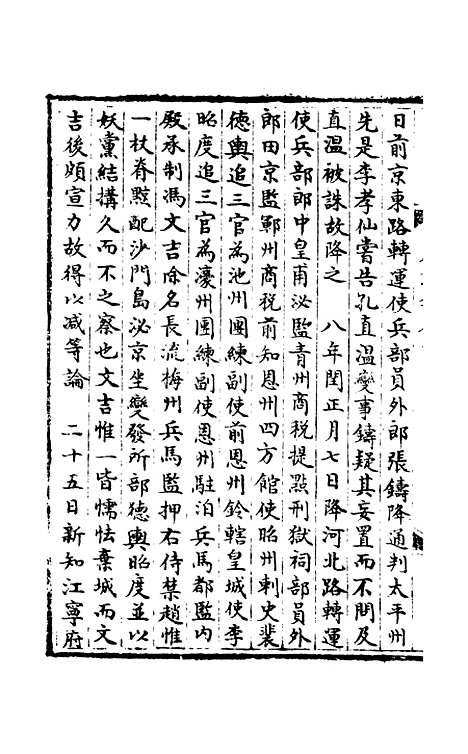 日前京東路轉運使兵部員外郎張鑄降通判太平州
先是李孝仙嘗告孔直溫變事鑄疑其妄置而不問及
直溫被誅故降之　八年閏正月七日降河北路轉運
使兵部郎中皇甫泌監青州商税提㸃刑獄祠部員外
郎田京監鄆州商税前知恩州四方館使昭州刺史裴
德輿追三官為池州團練副使前恩州鈐轄皇城使李
昭度追三官為濠州團練副使恩州駐泊兵馬都監内
殿承制馮文吉除名長流梅州兵馬監押右侍禁趙惟
一杖脊黥配沙門島泌京坐變發所部德輿昭度並以
妖黨結搆久而不之察也文吉惟一皆懦怯棄城而文
吉後頗宣力故得以减等論　二十五日新知江寧府